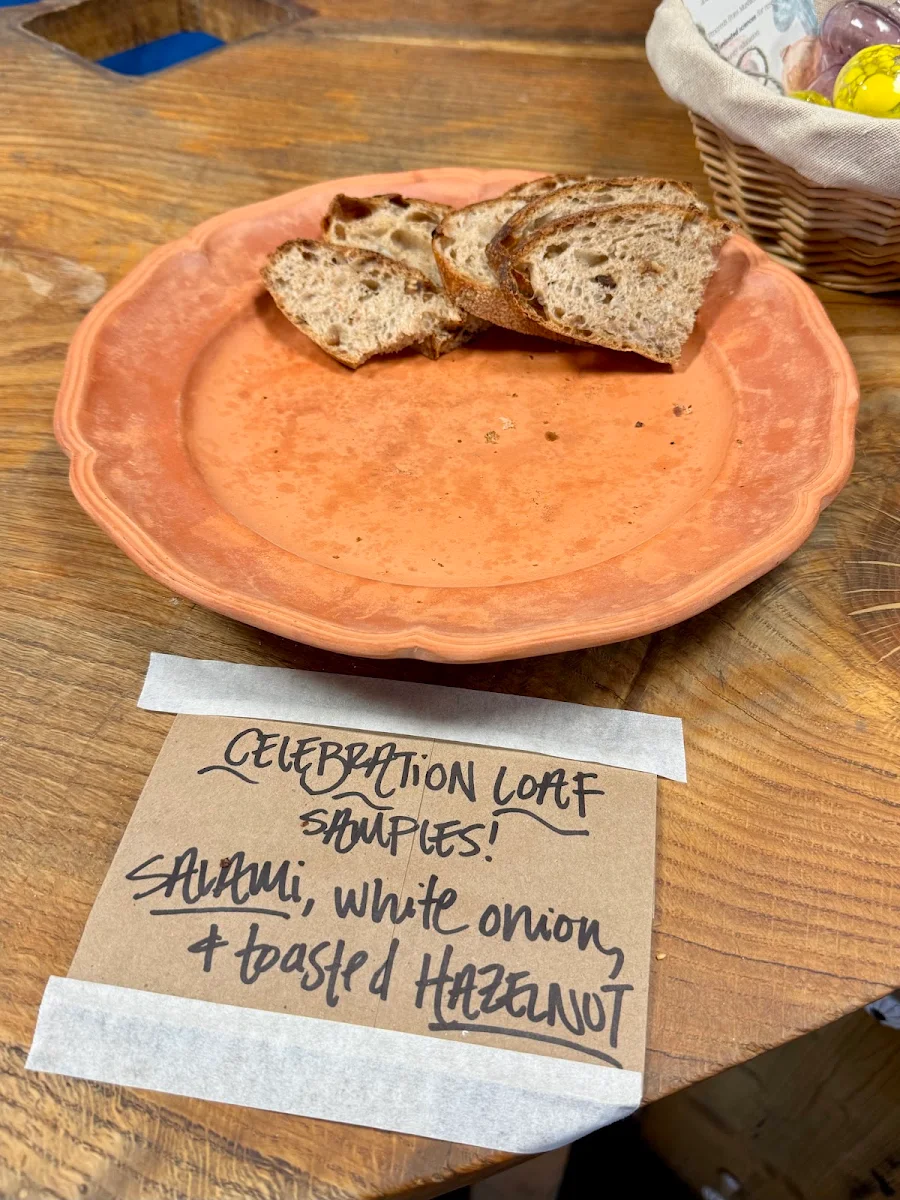 CELEBRATiON LOAF
SAMPLES!
SALAMi, white onion,
& toasted HAZELNUT